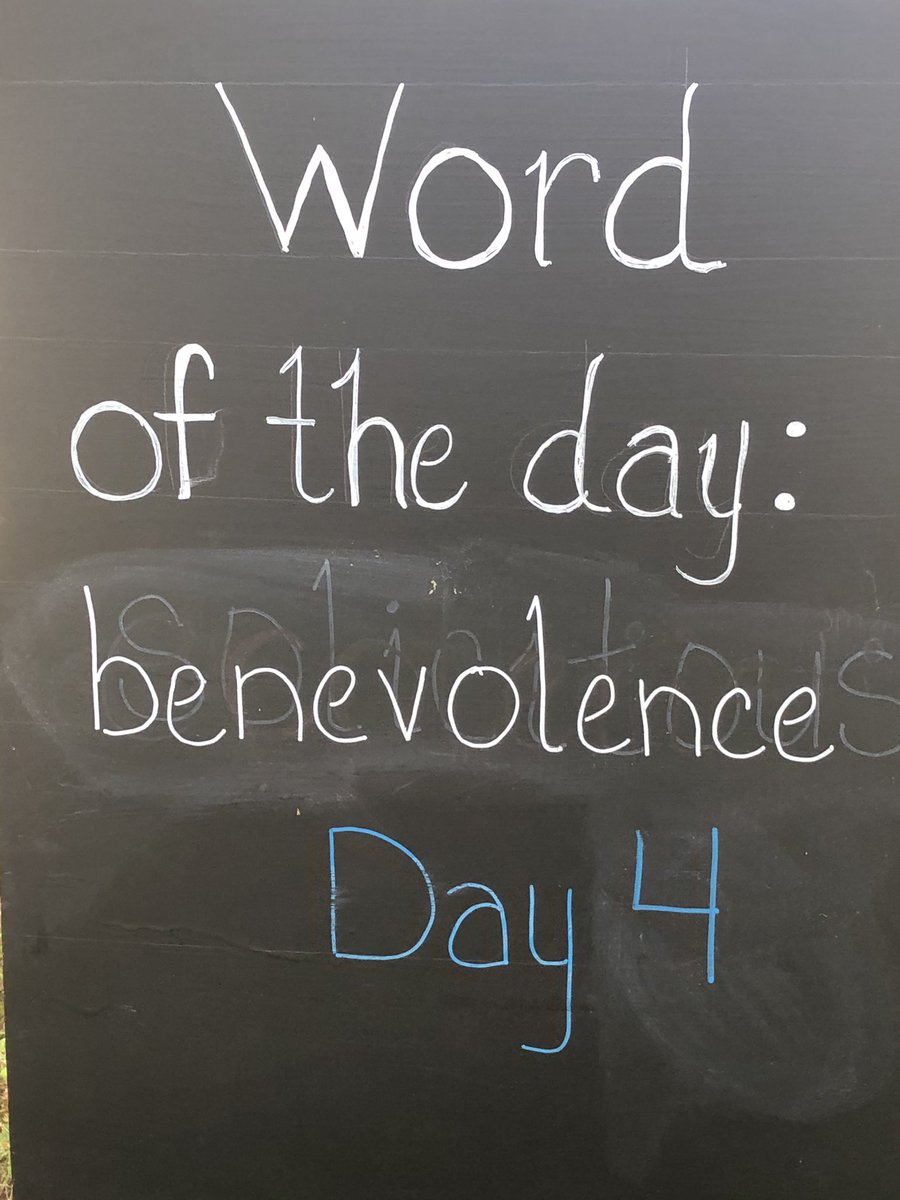 Word
of the day:
benevolence
Day 4